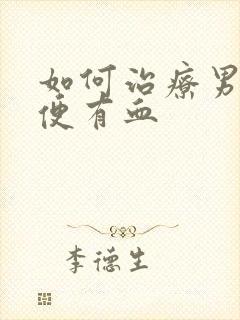 如何治疗男
便有血
李德生